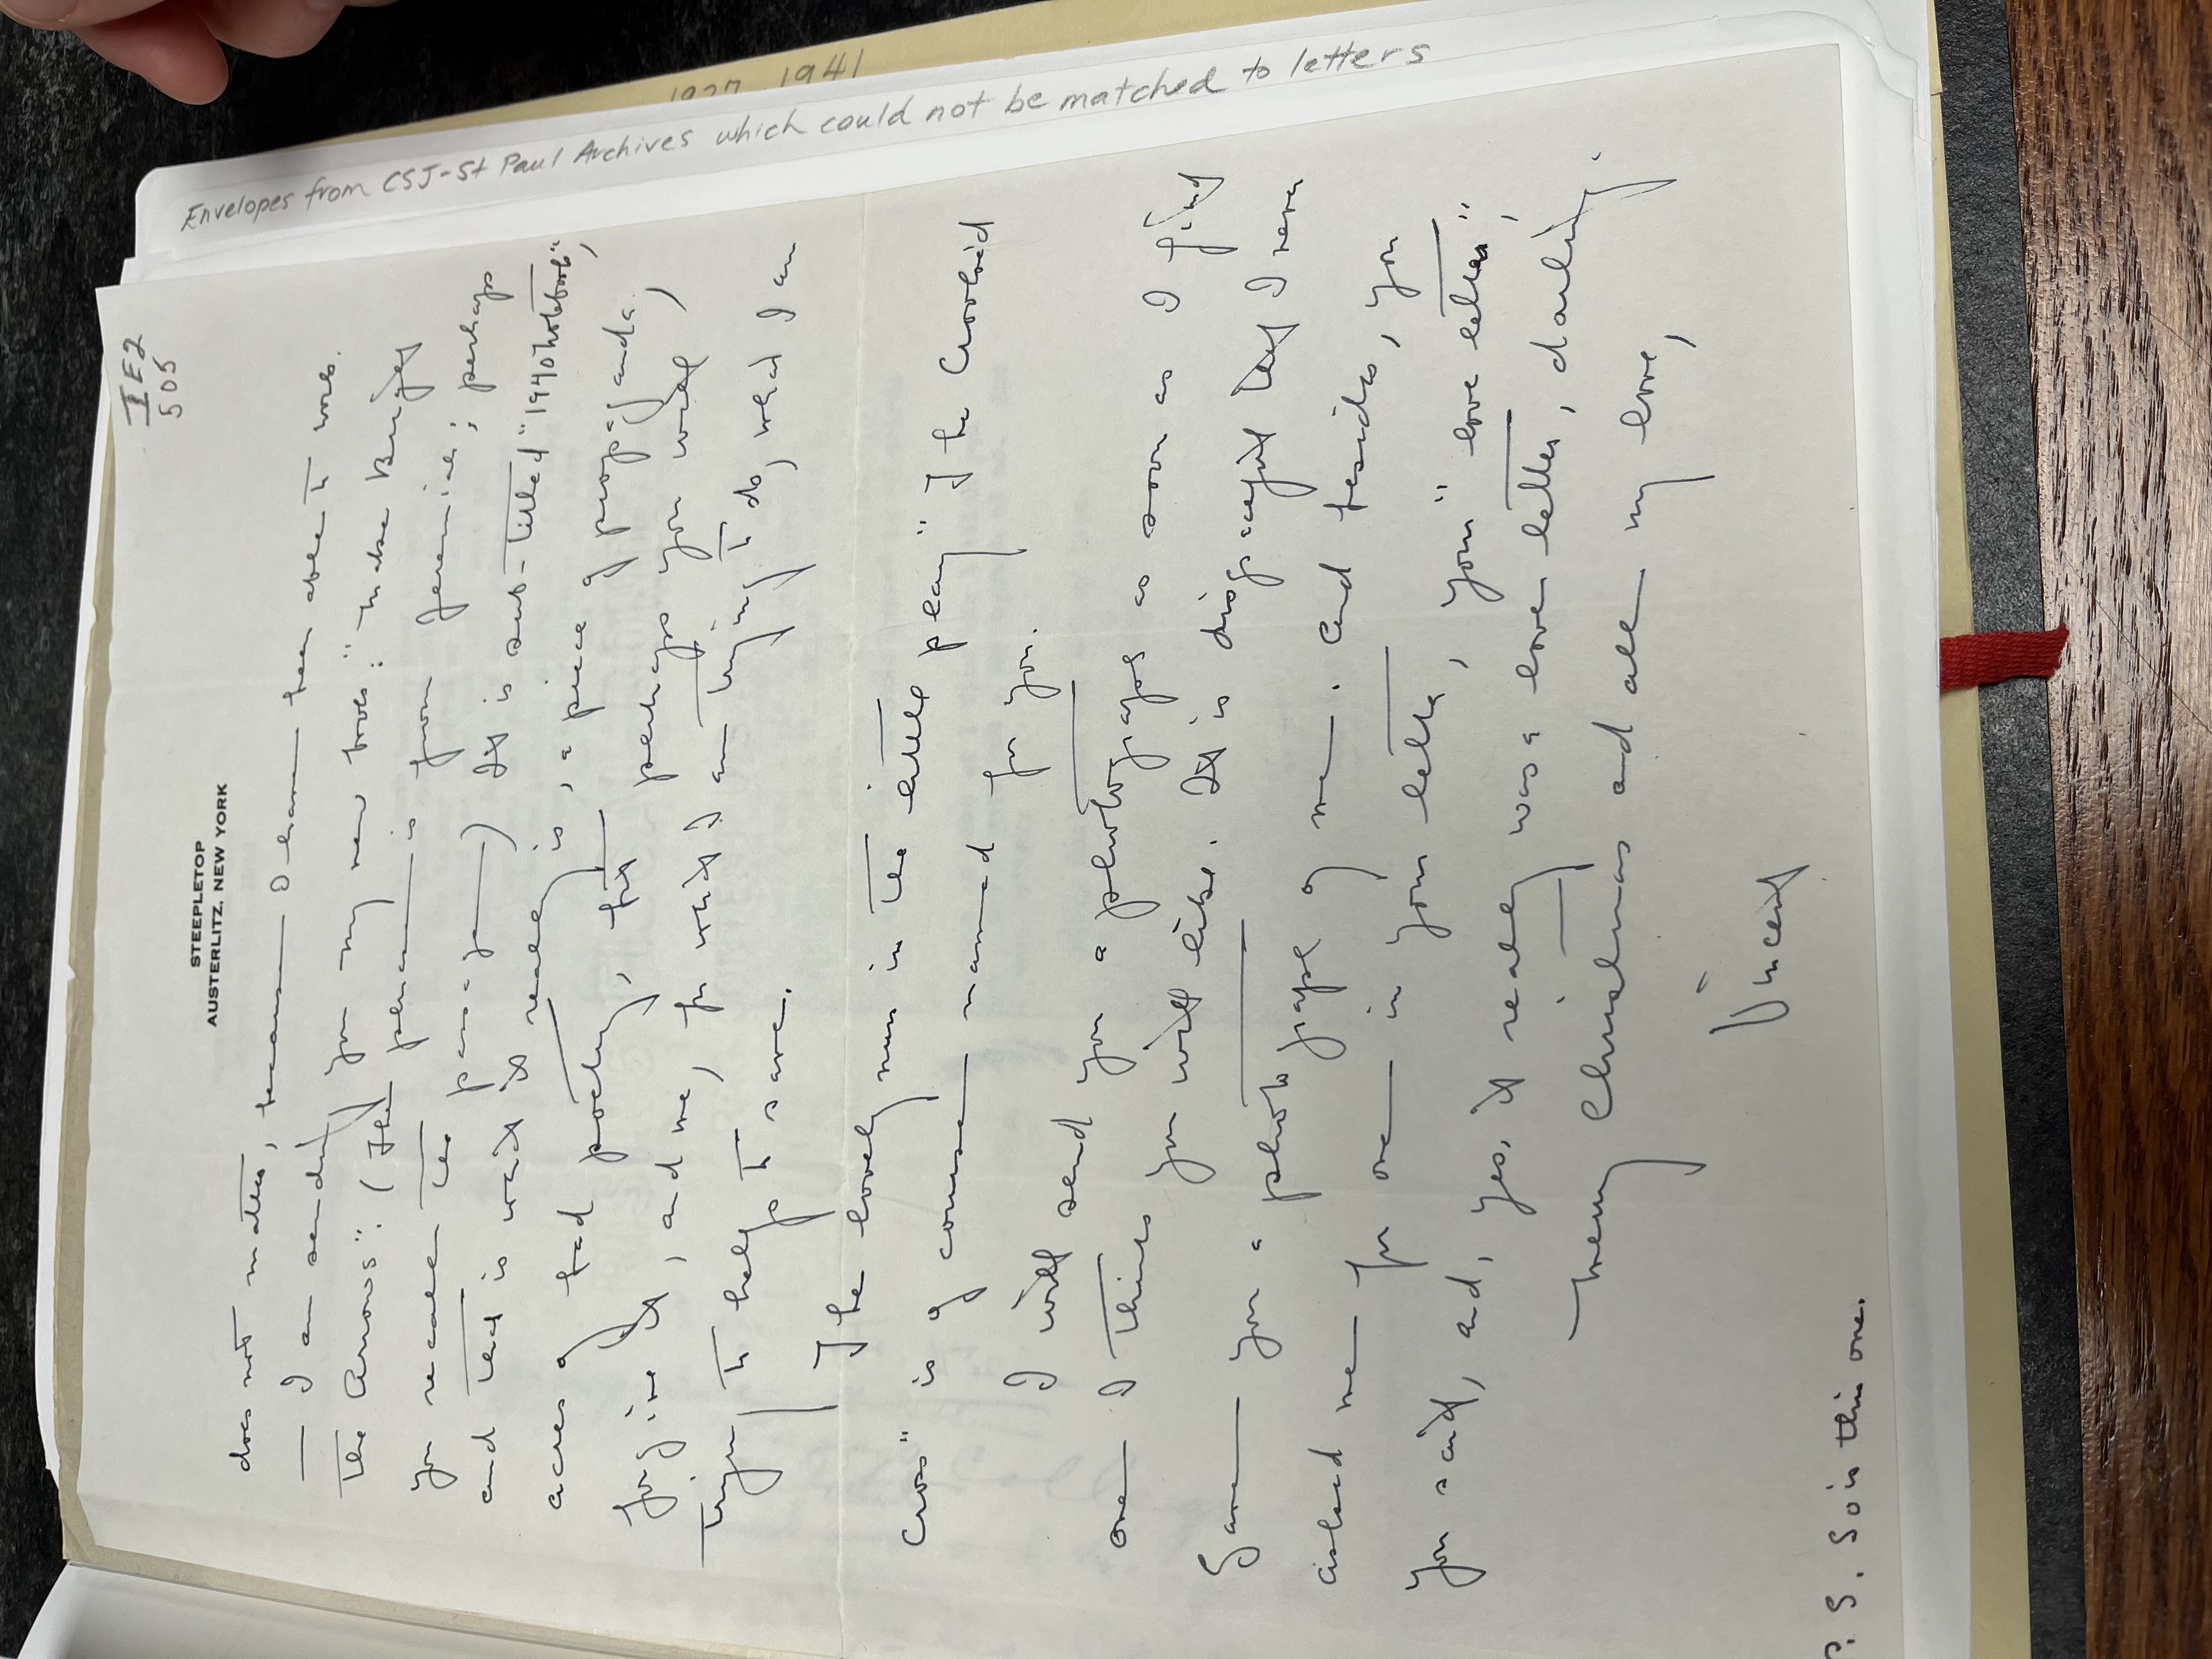 IE2
505
STEEPLETOP
AUSTERLITZ, NEW YORK
does not matter, because I have been able to work.
— I am sending you my new book: "Make Bright
the Arrows". (The phrase is from Jeremiah; perhaps
you recall the passage) It is sub-titled "1940 Notebook",
and that is what it really is, a piece of propaganda,
acres of bad poetry, but perhaps you will
forgive it, and me, for what I am trying to do, what I am
trying to help to save.
The lovely nun in the little play "The Crooked
Cross" is of course named for you.
I will send you a photograph as soon as I find
one I think you will like. It is disgraceful that I never
gave you a photograph of me. And besides, you
asked me for one in your letter, your "love letter",
you said, and, yes, it really was a love letter, darling.
Merry Christmas and all my love,
Vincent
P. S. So is this one.
Envelopes from CSJ-St Paul Archives which could not be matched to letters
1941